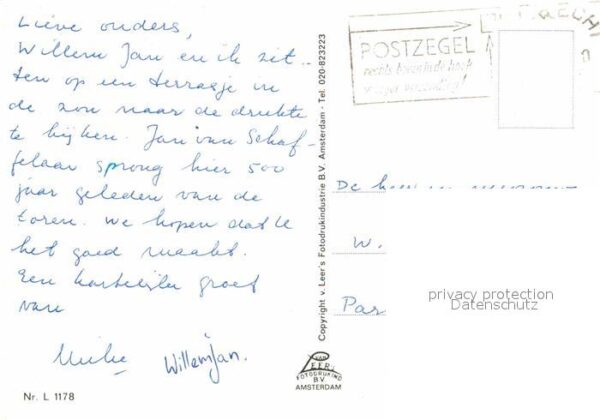 Lieve ouders,
Willem Jan en ik zit-
ten op een terrasje in
de zon naar de drukte
te kijken. Jan van Schaf-
felaar sprong hier 500
jaar geleden van de
toren. We hopen dat U
het goed maakt.
Een hartelijke groet
van
Willem Jan.
Nr. L 1178
Copyright v. Leer's Fotodrukindustrie B.V. Amsterdam - Tel. 020-823223
VAN
LEER'S
FOTODRUKIND
B.V.
AMSTERDAM
POSTZEGEL
rechts bovenin de hoek
De
W.
Par
privacy protection
Datenschutz